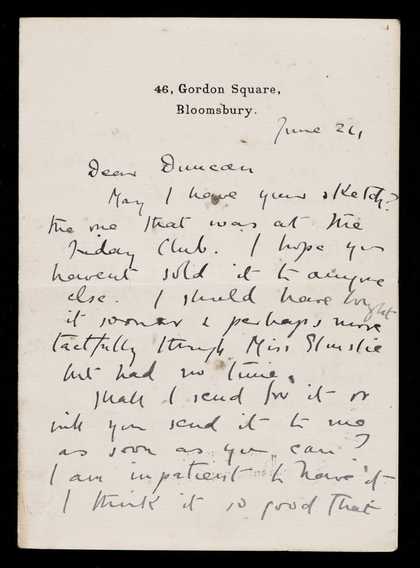 46, Gordon Square,
Bloomsbury.
June 24
Dear Duncan
May I have your sketch?
the one that was at the
Friday Club. I hope you
havent sold it to anyone
else. I should have bought
it sooner & perhaps more
tactfully through Miss Elmslie
but had no time.
Shall I send for it or
will you send it to me
as soon as you can?
I am impatient to have it
I think it so good that